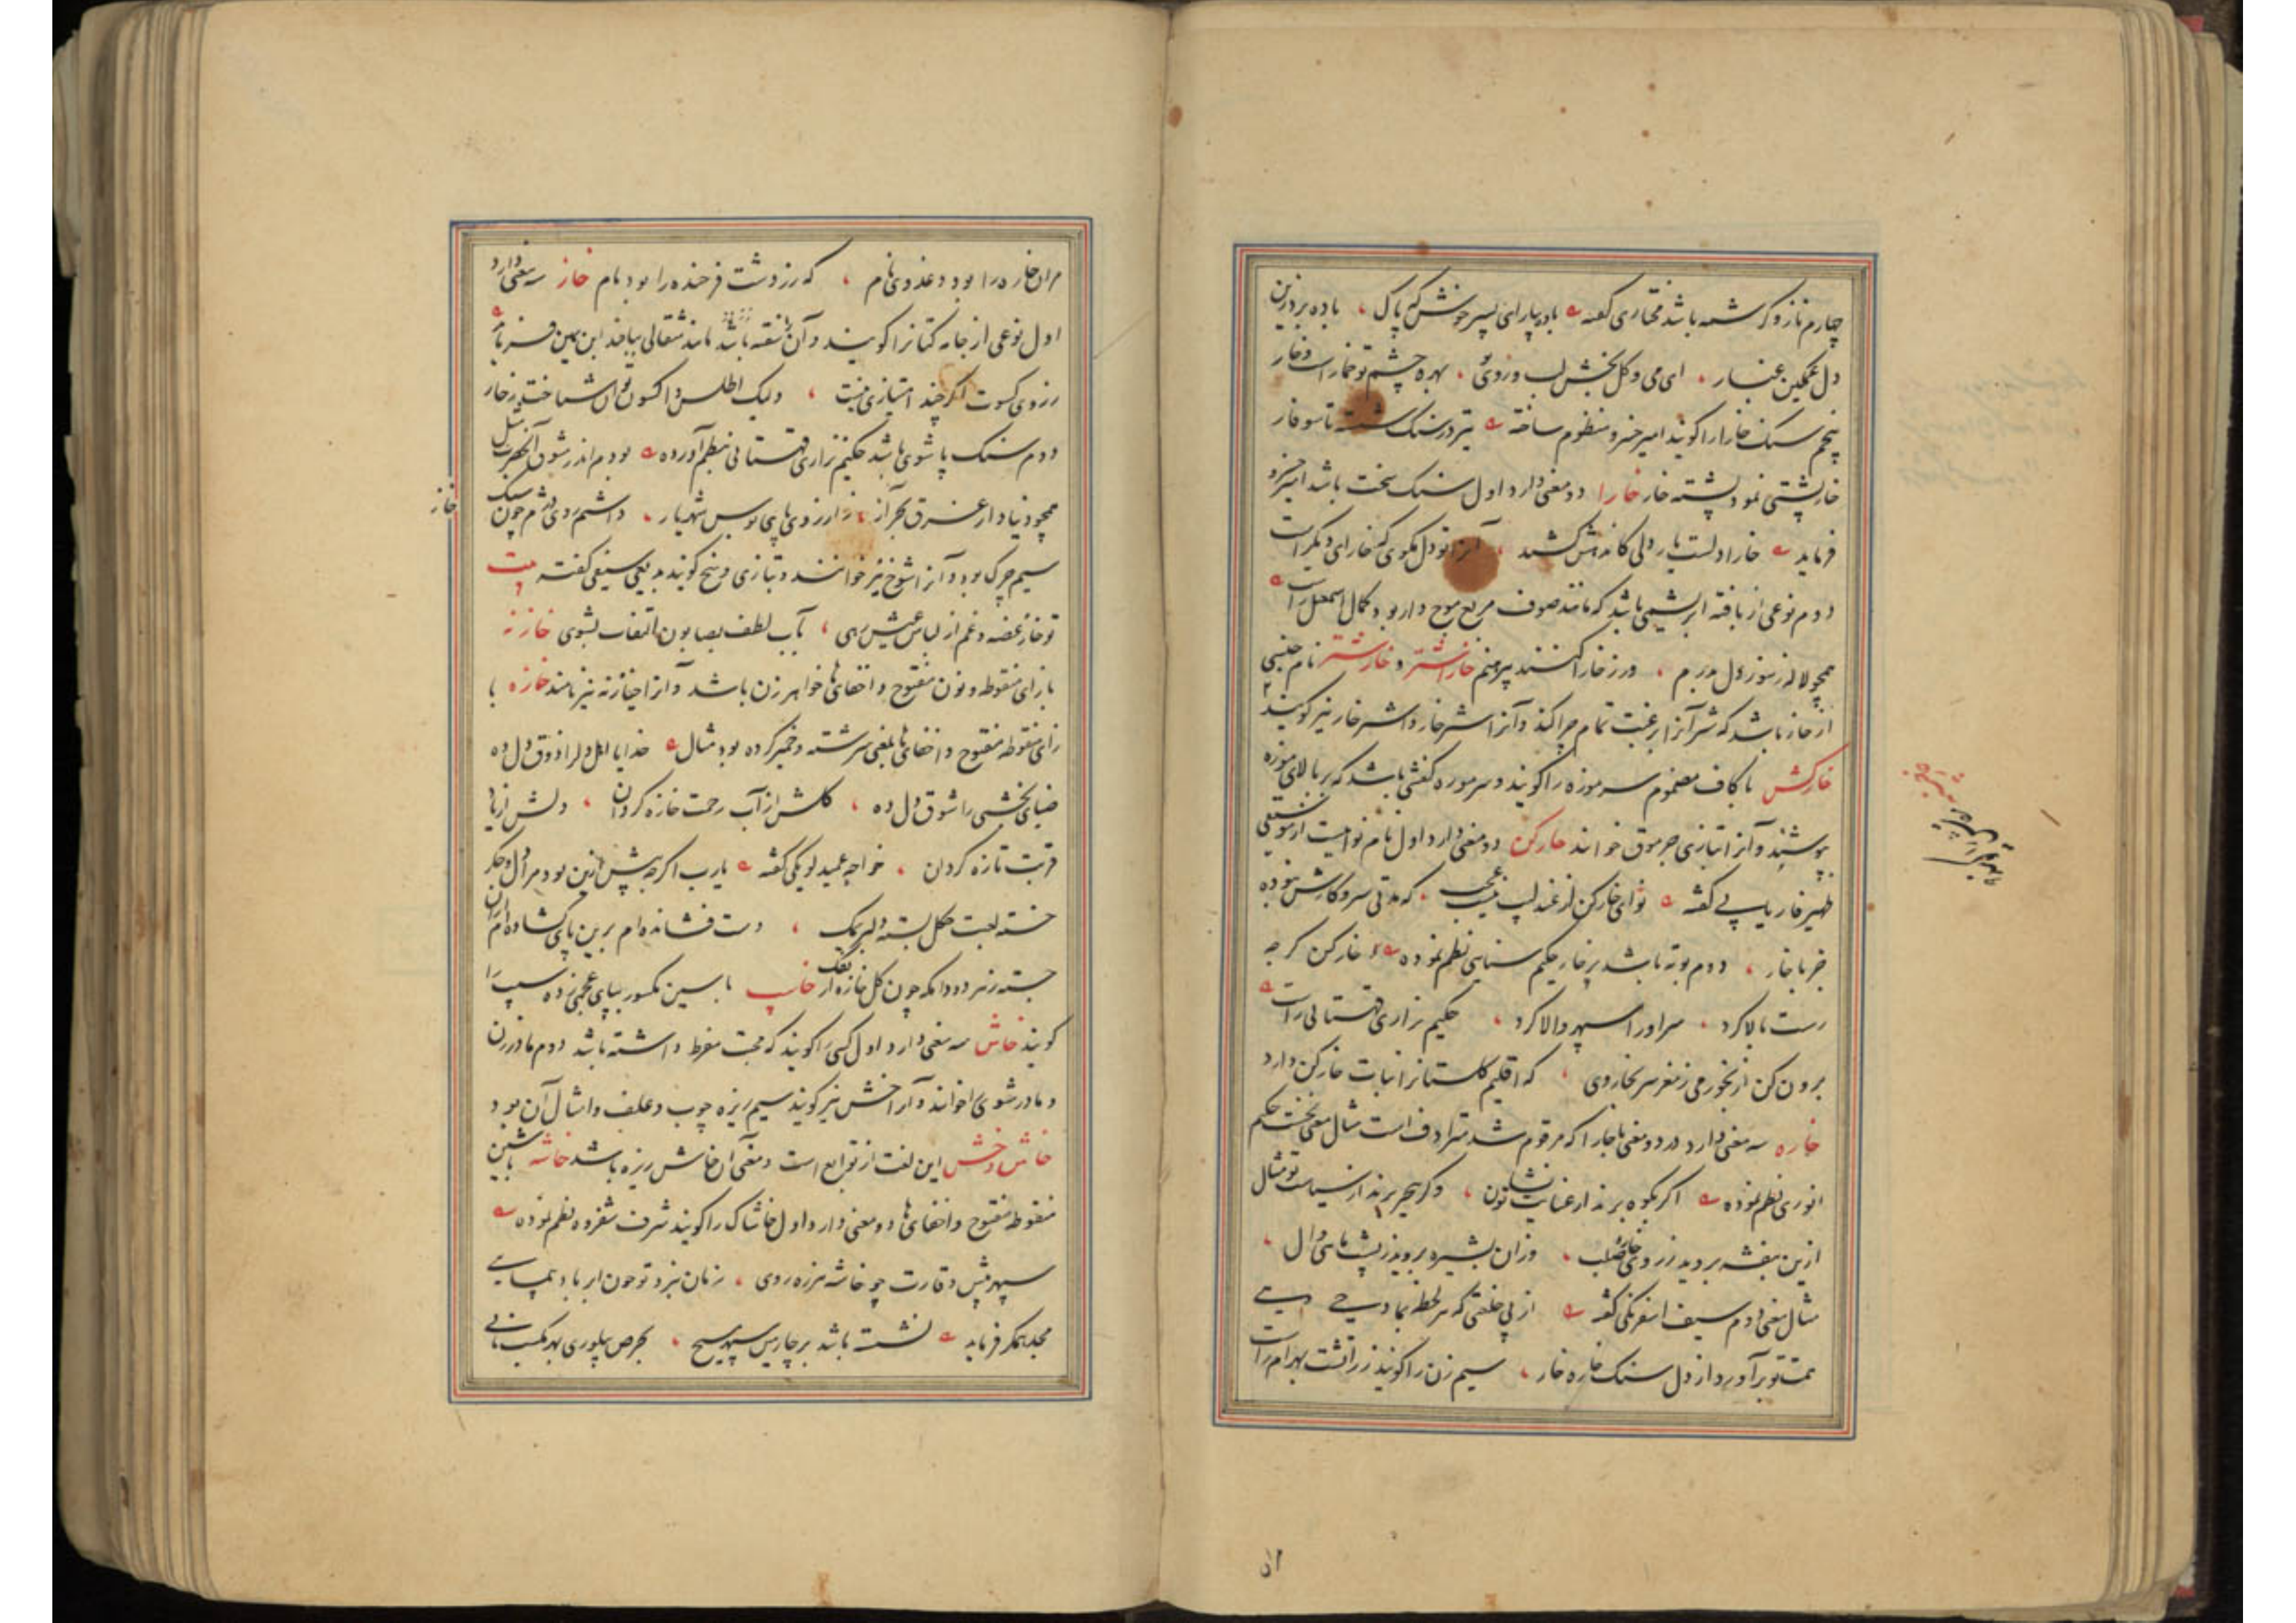 چهارم ناز و کرشمه باشد مختاری گفته باده پیار ای پسر خوش کپاک باده بر دزین
دل غمکین غبار ای می و کل بخش لب و روی بهره چشم تو خمار است و خار
پنجم سنک خارا را کویند امیرخسرو منظوم ساخته تیر در سنک شسته تا سوفار
خارپشتی نمود پشته خار خارا دو معنی دارد اول سنک سخت باشد امیرخسرو
فرماید خارا دلست یار دلی کاندهش کشد تو دل مکوی که خارای دیکر است
دوم نوعی از بافته ابریشمی باشد که مانند صوف مربع موج دار بود کمال اسمعیل راست
همچو لاله ز سوز دل بدرم ور ز خارا کنند پیرهنم خاراشتر و خارشتر نام جنسی
از خار باشد که شتر آنرا برغبت تمام چرا کند و آنرا اشترخار و اشترخار نیز کویند
خارکش با کاف مضموم سرموزه را کویند و سرموزه کفشی باشد که بر بالای موزه
پوشند و آنرا بتازی جرموق خوانند خارکن دو معنی دارد اول نام نوائیست از موسیقی
ظهیر فاریابی گفته نوای خارکن از عندلیب نیست عجب که مدتی سر و کارش نبوده
جز با خار دوم بوته باشد پر خار حکیم سنایی نظم نموده خارکن کرچه
رست بالا کرد سر او را سپهر والا کرد حکیم نزاری قهستانی راست
برون کن از نخوری ز مغز سر بخاروی که اقلیم کلستانرا نبات خارکن دارد
خاره سه معنی دارد در دو معنی با خارا که مرقوم شد مترادفست مثال معنی نخست حکیم
انوری نظم نموده اکر بکوه برند از عنایت تو نشان وکر ببحر برند از سیاست تو مثال
ازین بنفشه بروید ز روی خاره صلب وزان بشیزه بریزد ز پشت ماهی وال
مثال معنی دوم سیف اسفرنکی گفته از پی خلعتی که هر لحظه بما دی
عتابو برآورد از دل سنک خاره خار سیم زن را کویند زراتشت بهرام راست
مر ان خاره را بود دغدوی نام که زردشت فرخنده را بود مام خاز سه معنی دارد
اول نوعی از جامه کتانرا کویند و آن بافته باشد مانند مثقالی بیاید ابن یمین فرماید
ز روی کسوت اکر چند امتیازی نیست ولیک اطلس و اکسون توان شناخت ز خاز
دوم سنک پاشوی باشد حکیم نزاری قهستانی بنظم آورده بودم اندر شوق آنحضرت مثل
همچو دنیادار غرق بحر آز ز آرزوی پای بوس شهریار داشتم روی دژم چون سنک
خاز
سیم چرک بود و آنرا شوخ نیز خوانند و بتازی وسخ کویند بدیعی سیفی گفته بیت
تو خاز غصه و غم از لباس عیش رهی بآب لطف بصابون التفات بشوی خازنه
با زای منقوطه و نون مفتوح و اخفای ها خواهر زن باشد و آنرا خیازنه نیز نامند خازه با
زای منقوطه مفتوح و اخفای ها بمعنی سرشته و خمیر کرده بود مثال خدایا اهل دلرا ذوق دل ده
ضیای بخشی را شوق دل ده کلش از آب رحمت خازه کردان دلش از یاد
قربت تازه کردان خواجه عمید لویکی گفته یارب اکرچه پیش ازین بود مرا دل و جکر
خسته لعبت چکل بسته دلبر یمک دست فشانده ام برین پای کشاده ام ازان
جسته ز بند دودامکه چون کل خازه از تفک خاسپ با سین مکسور ببای عجمی زده سپ را
کویند خاش سه معنی دارد اول کسی را کویند که محبت مفرط داشته باشد دوم مادر زن
و مادر شوی را خوانند و آنرا خش نیز کویند سیم ریزه چوب و علف و امثال آن بود
خاش و خش این لغت از توابع است و معنی آن خاش ریزه باشد خاشه با شین
منقوطه مفتوح و اخفای ها دو معنی دارد اول خاشاک را کویند شرف شفروه نظم نموده
سپهر پیش وقارت چو خاشه هرزه روی زمان بنزد تو چون ابر باد پیمایی
مجد همکر فرماید نشسته باشد بر چارمین سپهر مسیح بحرص پیلوری بهر کسب